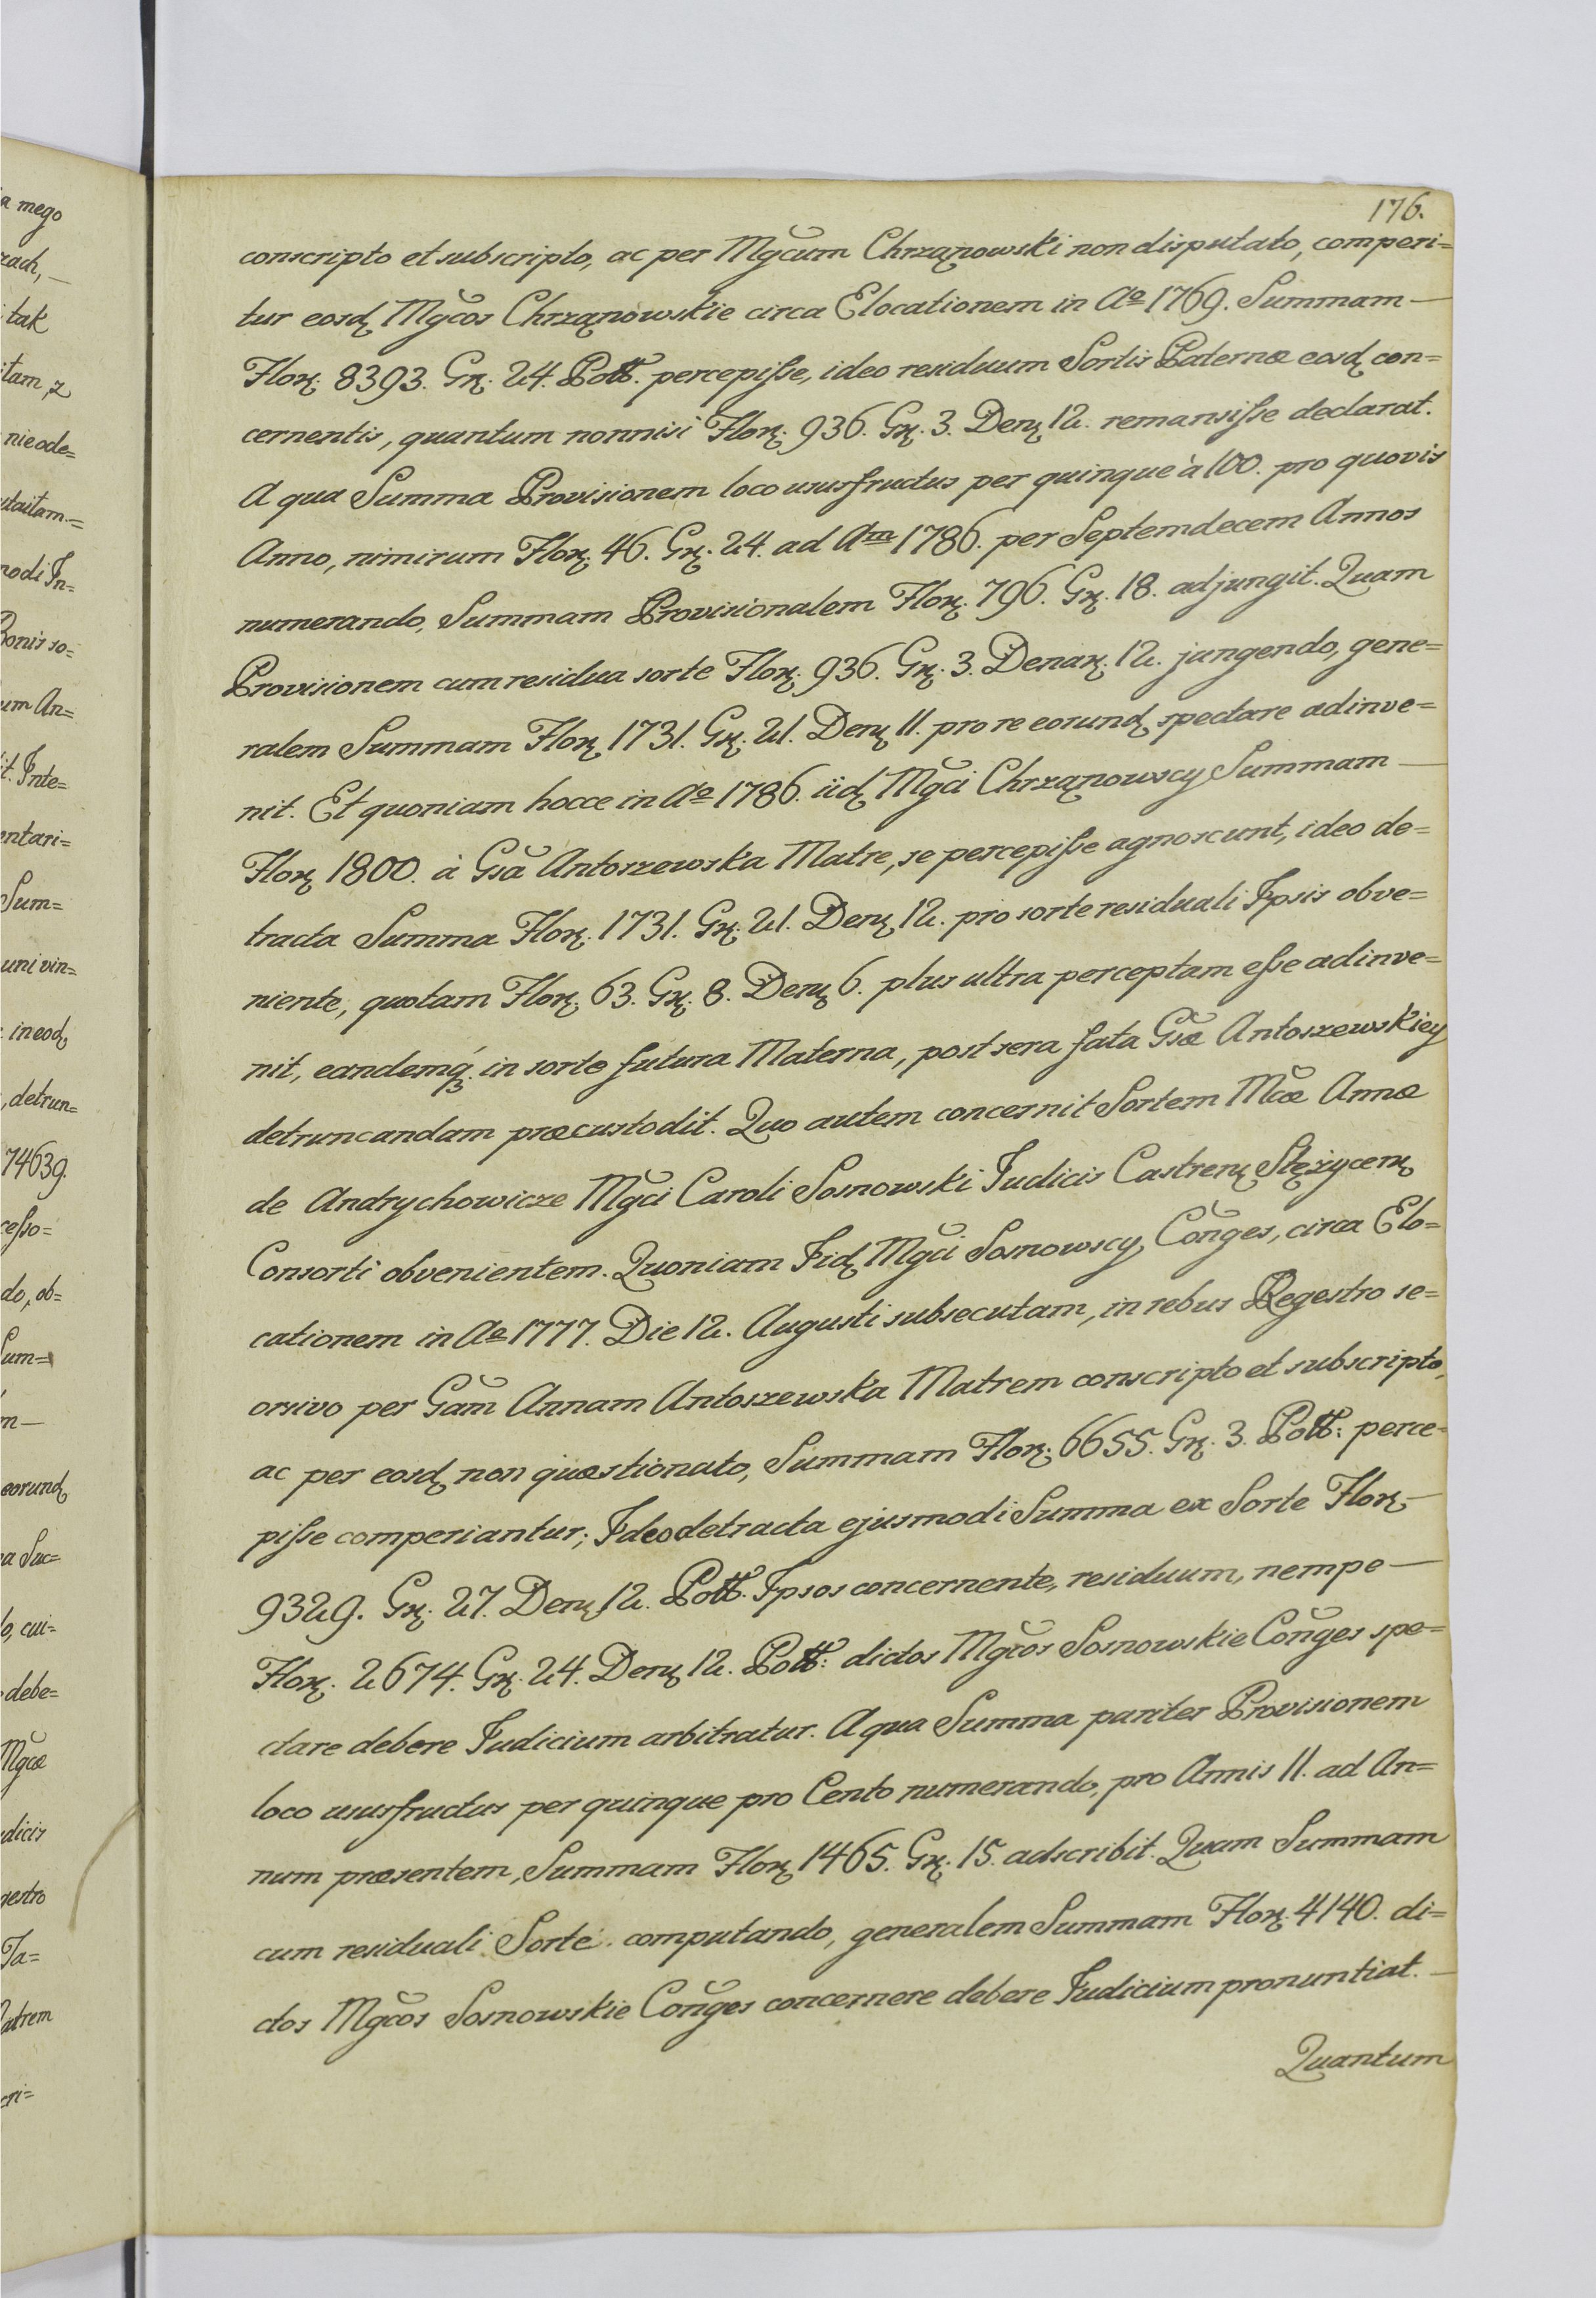 176.
conscripto et subscripto, ac per Mgc̃um Chrzanowski non disputato, comperi=
tur eosdꝫ Mgc̃os Chrząnowskie circa Elocationem in Aº 1769. Summam —
Florꝫ. 8393. Grꝫ. 24. Poll. percepisse, ideo residuum Sortis Paternæ eosdꝫ con=
cernentis, quantum nonnisi Florꝫ. 936. Grꝫ. 3. Denꝫ 12. remansisse declarat.
A qua Summa Provisionem loco ususfructus per quinque à 100. pro quovis
Anno, nimirum Florꝫ. 46. Grꝫ. 24. ad Aᵐ 1786. per Septemdecem Annos
numerando, Summam Provisionalem Florꝫ. 796. Grꝫ. 18. adjungit. Quam
Provisionem cum residua sorte Florꝫ. 936. Grꝫ. 3. Denarꝫ. 12. jungendo, gene=
ralem Summam Florꝫ 1731. Grꝫ. 21. Denꝫ 11. pro re eorundꝫ spectare adinve=
nit. Et quoniam hocce in Aº 1786. iidꝫ Mgc̃i Chrząnowscy Summam —
Florꝫ 1800. à Gsã Antoszewska Matre, se percepisse agnoscunt, ideo de=
tracta Summa Florꝫ. 1731. Grꝫ. 21. Denꝫ 12. pro sorte residuali Ipsis obve=
niente, quotam Florꝫ. 63. Grꝫ. 8. Denꝫ 6. plus ultra perceptam esse adinve=
nit, eandemqꝫ. in sorte futura Materna, post sera fata Gsæ̃ Antoszewskiey
detruncandam præcustodit. Quo autem concernit Sortem Mc̃æ Annæ
de Andrychowicze Mgc̃i Caroli Sosnowski Judicis Castrenꝫ Stężycenꝫ
Consorti obvenientem. Quoniam Iidꝫ Mgc̃i Sosnowscy Coñges, circa Elo=
cationem in Aº 1777. Die 12. Augusti subsecutam, in rebus Regestro se=
orsivo per Gãm Annam Antoszewska Matrem conscripto et subscripto,
ac per eosdꝫ non quæstionato, Summam Florꝫ. 6655. Grꝫ. 3. Poll: perce=
pisse comperiantur; Ideo detracta ejusmodi Summa ex Sorte Florꝫ. —
9329. Grꝫ. 27. Denꝫ 12. Poll. Ipsos concernente, residuum, nempe —
Florꝫ. 2674. Grꝫ. 24. Denꝫ 12. Poll: dictos Mgc̃os Sosnowskie Coñges spe=
ctare debere Judicium arbitratur. A qua Summa pariter Provisionem
loco ususfructus per quinque pro Cento numerando, pro Annis 11. ad An=
num præsentem, Summam Florꝫ 1465. Grꝫ. 15. adscribit. Quam Summam
cum residuali Sorte computando, generalem Summam Florꝫ. 4140. di=
ctos Mgc̃os Sosnowskie Coñges concernere debere Judicium pronuntiat. —
Quantum